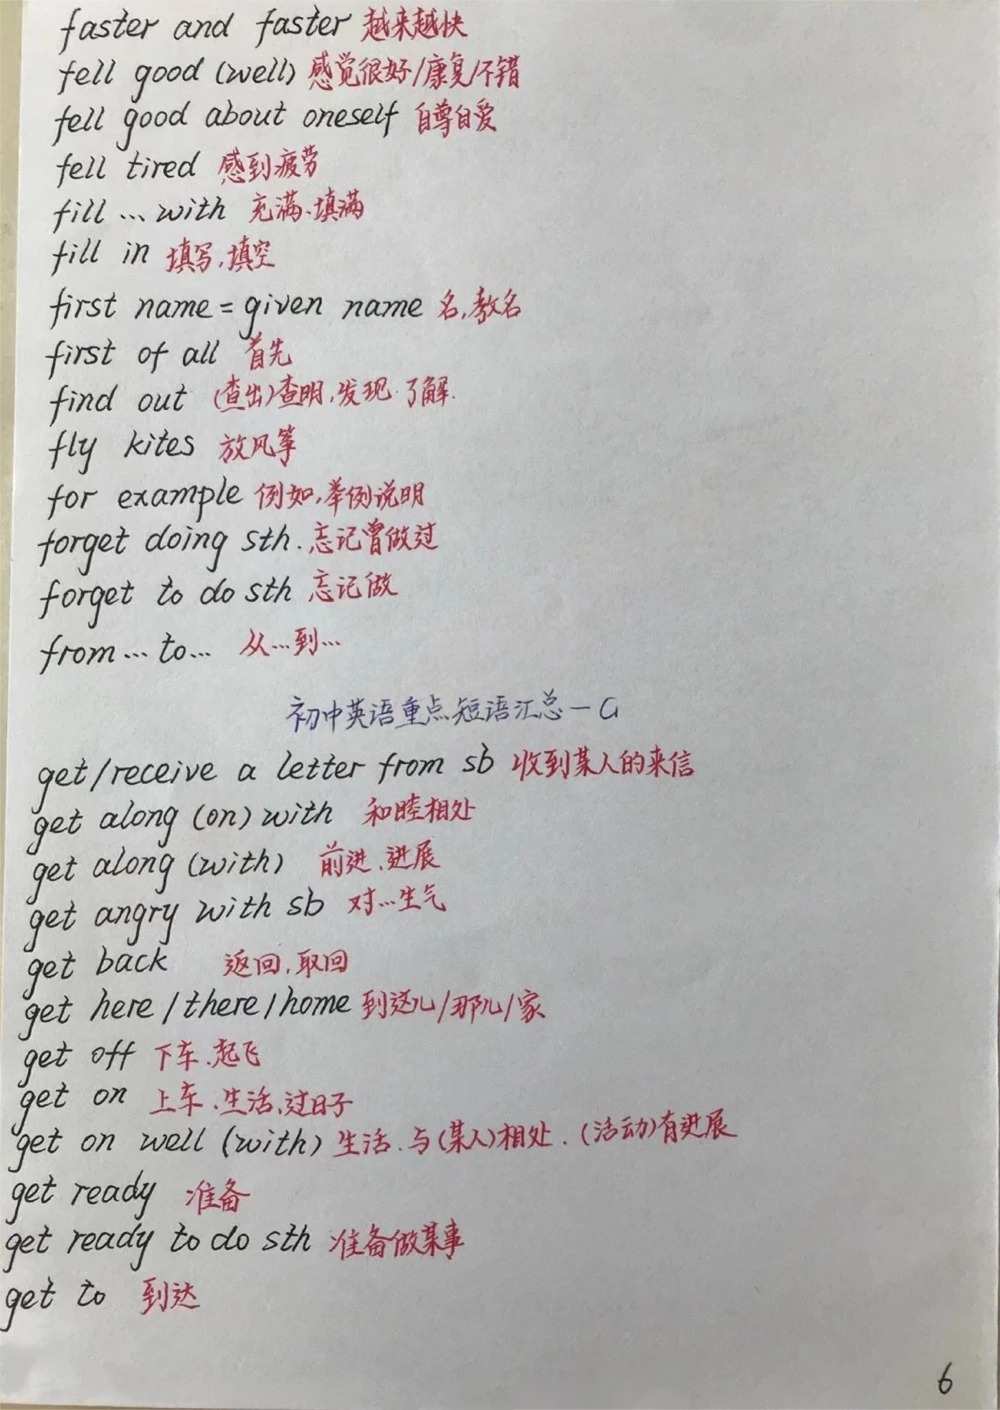 faster and faster 越来越快
fell good (well) 感觉很好/康复/不错
fell good about oneself 自尊自爱
fell tired 感到疲劳
fill ... with 充满、填满
fill in 填写,填空
first name = given name 名,教名
first of all 首先
find out (查出)查明,发现.了解.
fly kites 放风筝
for example 例如,举例说明
forget doing sth. 忘记曾做过
forget to do sth 忘记做
from... to... 从...到...
初中英语重点短语汇总一G
get/receive a letter from sb 收到某人的来信
get along (on) with 和睦相处
get along (with) 前进、进展
get angry with sb 对...生气
get back 返回,取回
get here / there / home 到这儿/那儿/家
get off 下车.起飞
get on 上车.生活,过日子
get on well (with) 生活.与(某人)相处.(活动)有进展
get ready 准备
get ready to do sth 准备做某事
get to 到达
6